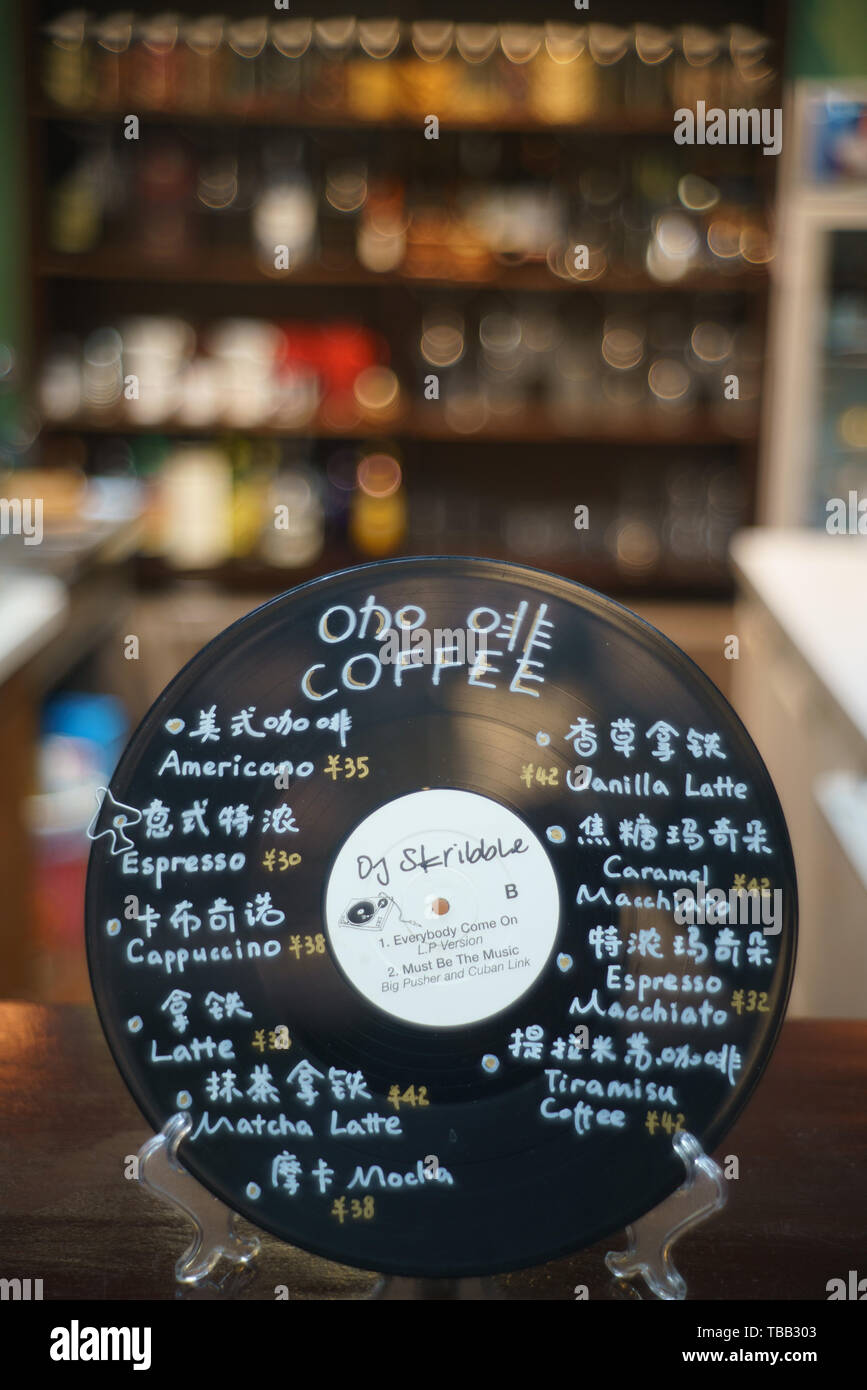 COFFEE
美式咖啡
Americano ¥35
意式特浓
Espresso ¥30
卡布奇诺
Cappuccino ¥38
拿铁
Latte
抹茶拿铁 ¥42
Matcha Latte
摩卡 Mocha
¥38
DJ Skribble
B
1. Everybody Come On
L.P Version
2. Must Be The Music
Big Pusher and Cuban Link
香草拿铁
¥42 Vanilla Latte
焦糖玛奇朵
Caramel
Macchiato ¥42
特浓玛奇朵
Espresso
Macchiato ¥32
提拉米苏咖啡
Tiramisu
Coffee ¥42
alamy
alamy
Image ID: TBB303
www.alamy.com